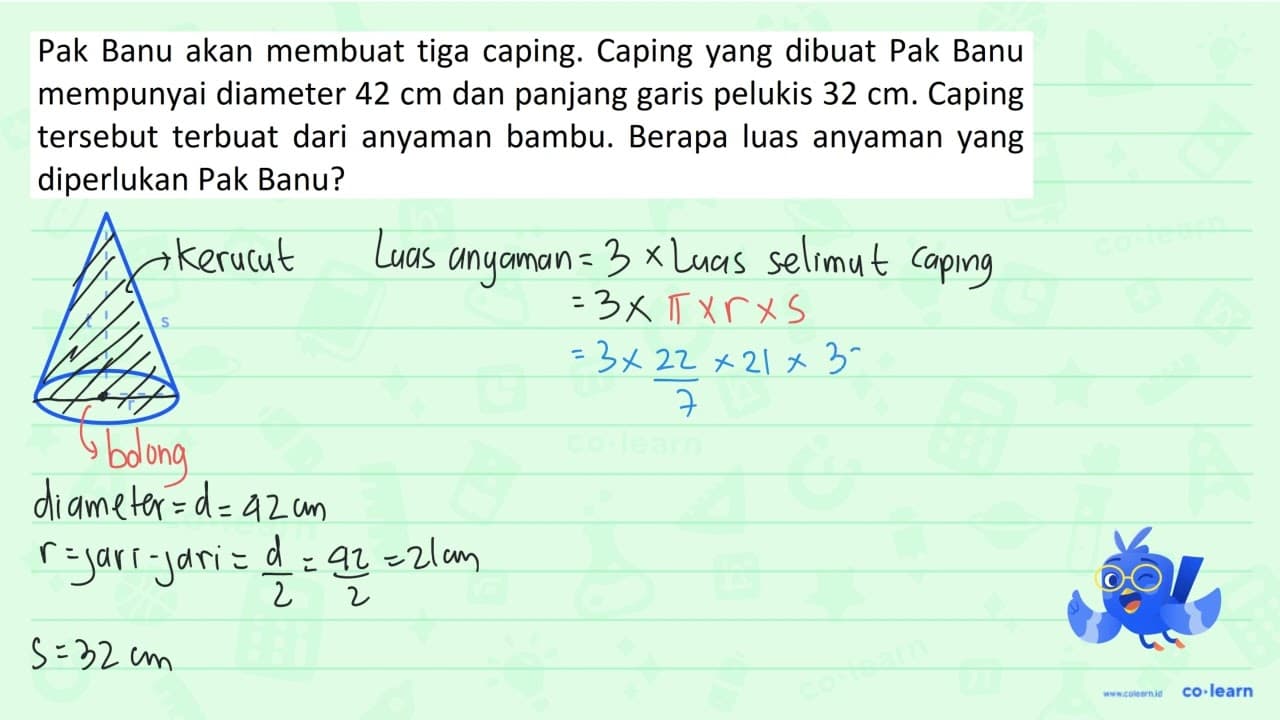 Pak Banu akan membuat tiga caping. Caping yang dibuat Pak Banu
mempunyai diameter 42 cm dan panjang garis pelukis 32 cm. Caping
tersebut terbuat dari anyaman bambu. Berapa luas anyaman yang
diperlukan Pak Banu?
kerucut
Luas anyaman = 3 × Luas selimut caping
= 3 × π × r × s
= 3 × 22/7 × 21 × 3
t
s
r
bolong
diameter = d = 42 cm
r = jari-jari = d/2 = 42/2 = 21 cm
s = 32 cm
www.colearn.id
co·learn
co·learn
co·learn
co·learn